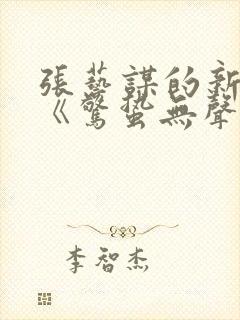 張藝謀的新
《驚蟄無聲
李智杰